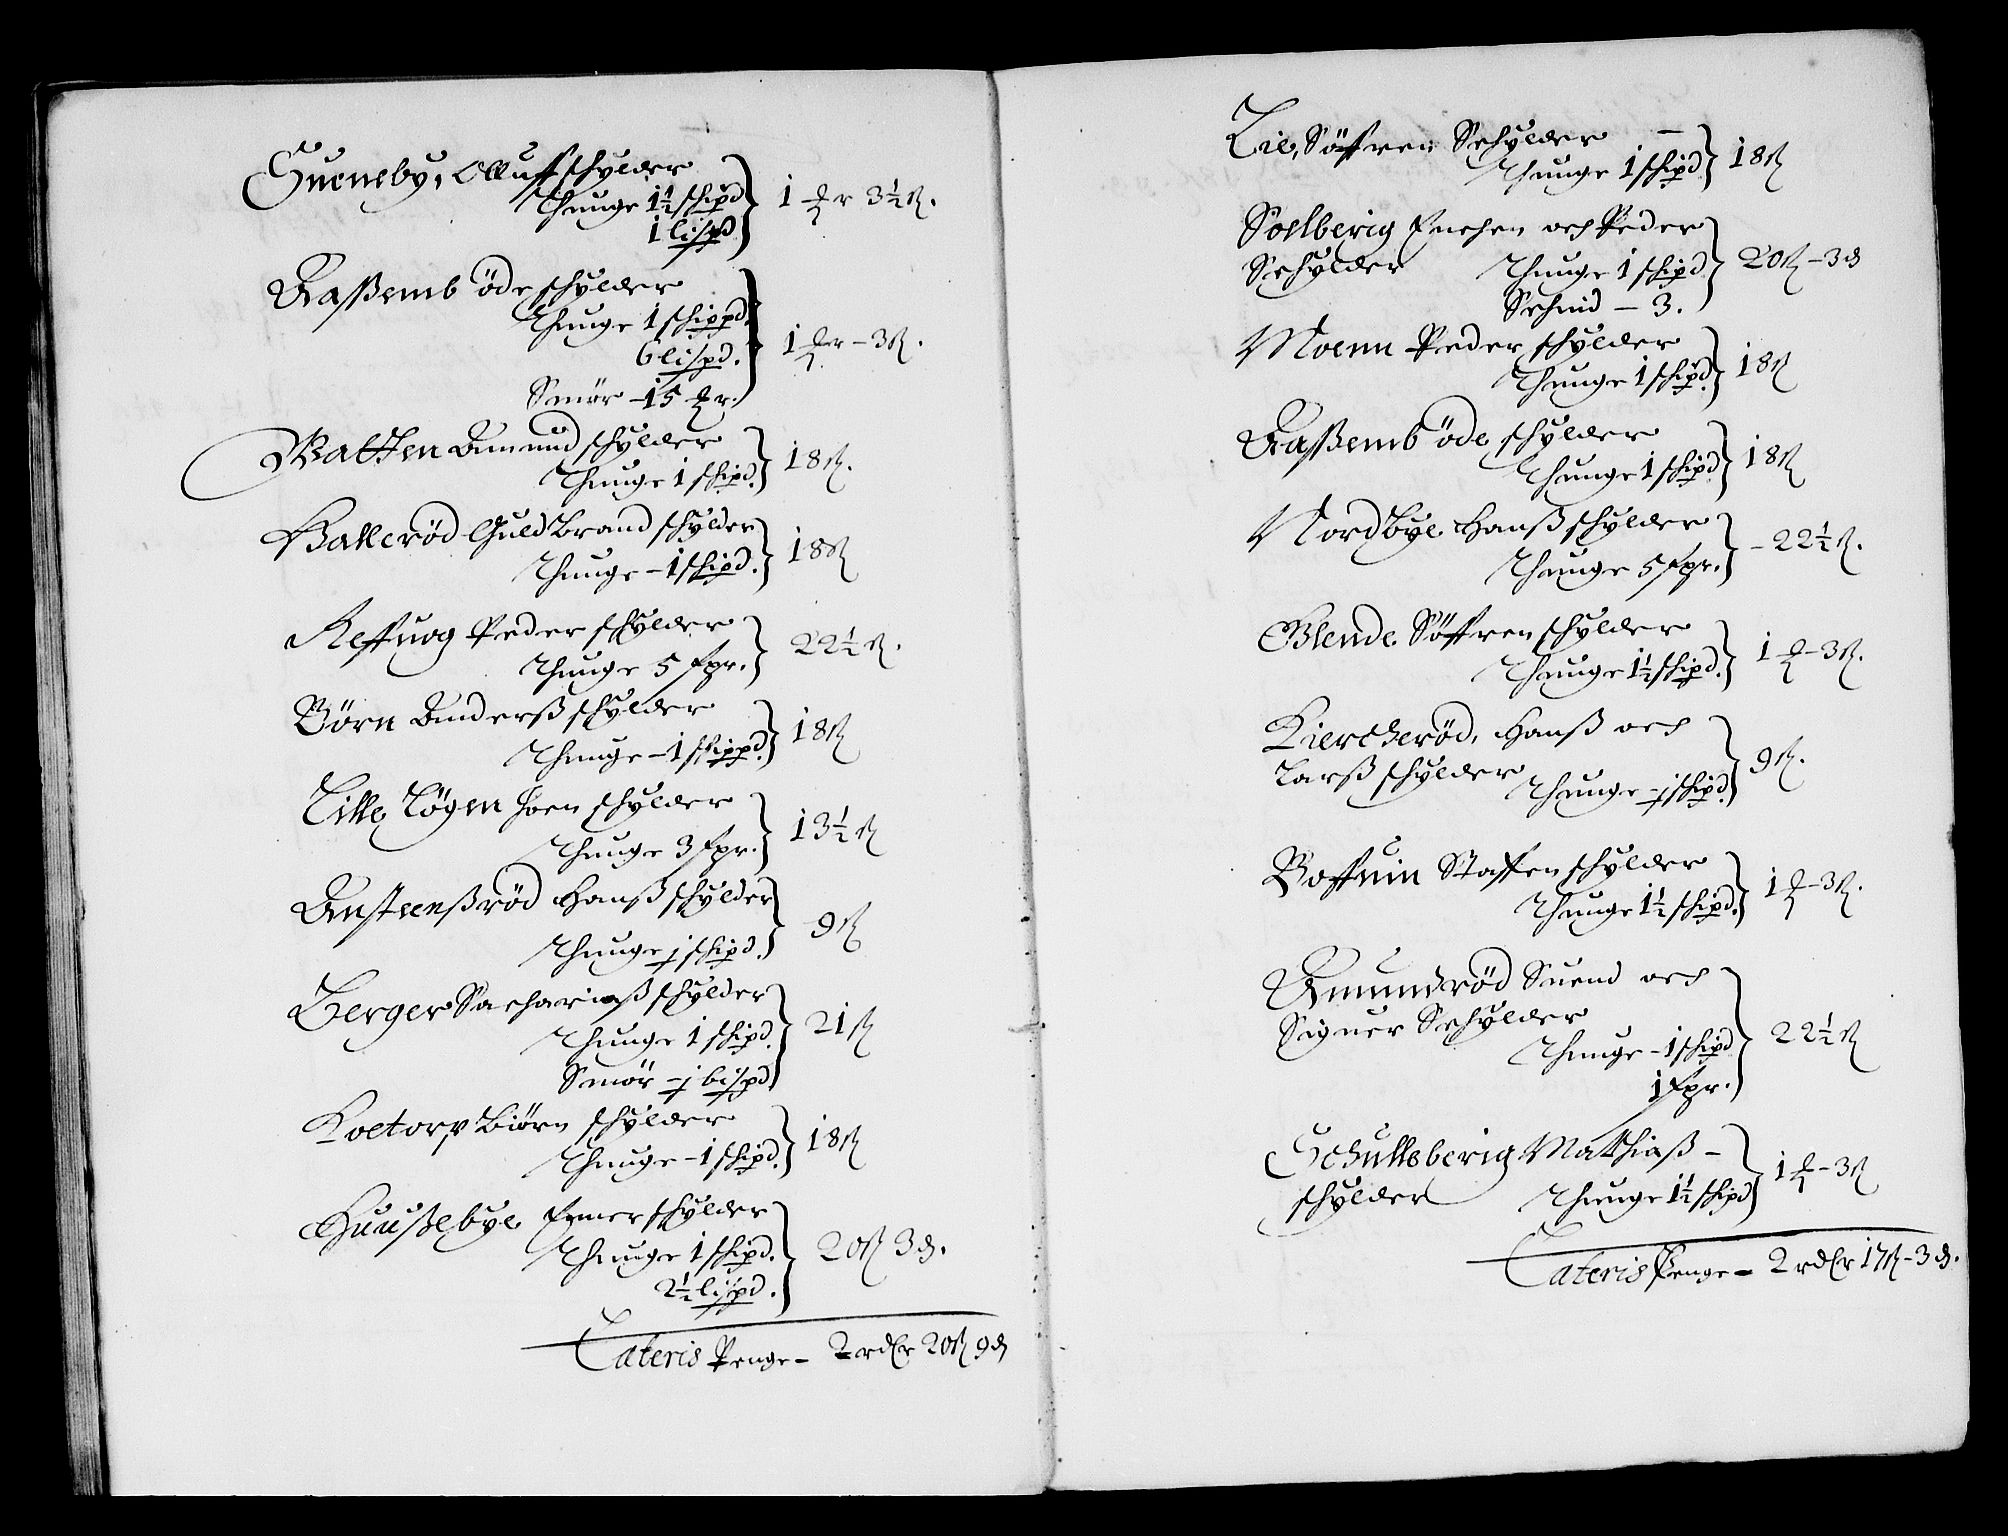 Sueneby, Olluf schylder
Thunge 1½ schipd
1 lispd
1 ort 3½ ß.
Aaßemb öde schylder
Thunge 1 schippd.
6 lispd.
Smör – 15 mr.
1 ort – 3 ß.
Walthen Amund schylder
Thunge 1 schipd.
18 ß.
Ballerød Guldbrand schylder
Thunge – 1 schipd.
18 ß
Reffuog Peder schylder
Thunge 5 fpr.
22½ ß.
Börn Anderß schylder
Thunge – 1 schippd.
18 ß
Lille Løgen Joen schylder
Thunge 3 fpr.
13½ ß
Austeenßröd Hanß schylder
Thunge ½ schipd.
9 ß
Berger Sachariaß schylder
Thunge 1 schipd.
Smör – ½ bispd
21 ß
Koetorp Biörn schylder
Thunge – 1 schipd.
18 ß
Huußebye Einer schylder
Thunge 1 schipd.
2½ lispd.
20 ß 3 d.
Lateris Penge – 2 rdlr 20 ß 9 d
Lie, Söffren Schylder –
Thunge 1 schipd.
18 ß
Soelberig Enchen och Peder
Schylder Thunge 1 schipd.
Schind – 3.
20 ß – 3 d
Moenn Peder schylder
Thunge 1 schipd.
18 ß
Aaßemb öde schylder
Thunge 1 schipd.
18 ß
Nordbye Hanß schylder
Thunge 5 fpr.
– 22½ ß.
Blende Söffren schylder
Thunge 1½ schipd.
1 ort – 3 ß.
Kiercheröd, Hanß och
Larß schylder Thunge – ½ schipd.
9 ß.
Boffuin Staffen schylder
Thunge 1½ schipd.
1 ort – 3 ß.
Amundröd Suend och
Signer Schylder
Thunge – 1 schipd
1 fpr.
22½ ß
Schullsberig Matthiaß –
schylder Thunge 1½ schipd
1 ort – 3 ß
Lateris Penge – 2 rdlr 17 ß – 3 d.